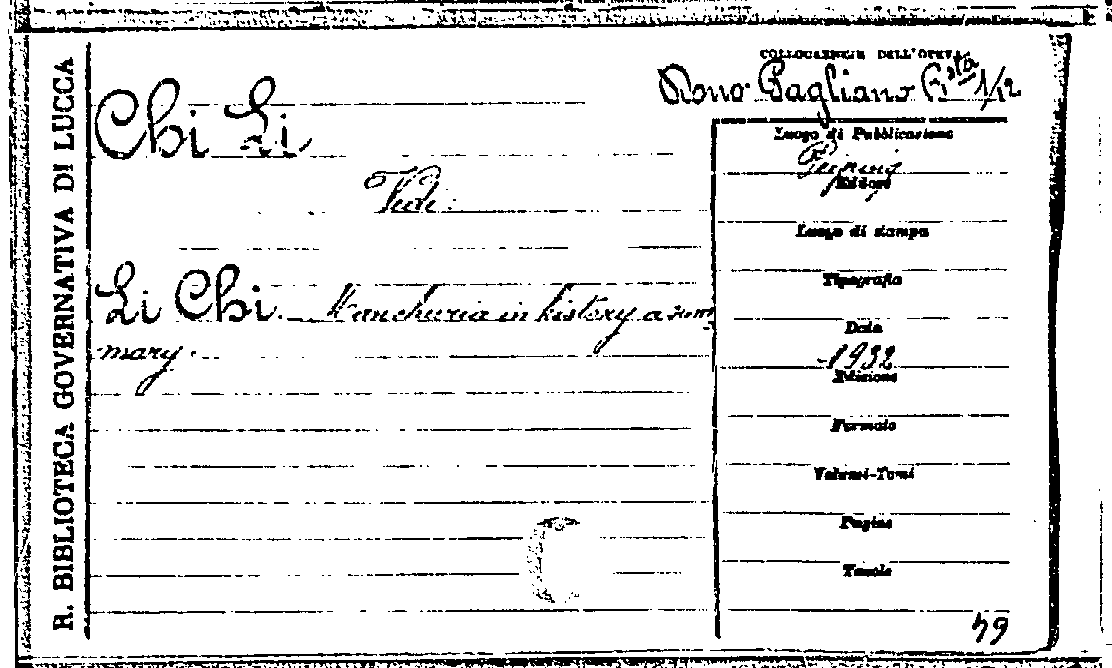 R. BIBLIOTECA GOVERNATIVA DI LUCCA
COLLOCAZIONE DELL'OPERA
Dono Pagliano Bsta 1/12
Chi Li
Vedi:
Li Chi. Manchuria in history a sum
mary.
Luogo di Pubblicazione
Peiping
Editore
Luogo di stampa
Tipografia
Data
1932
Edizione
Formato
Volumi-Tomi
Pagine
Tavole
49